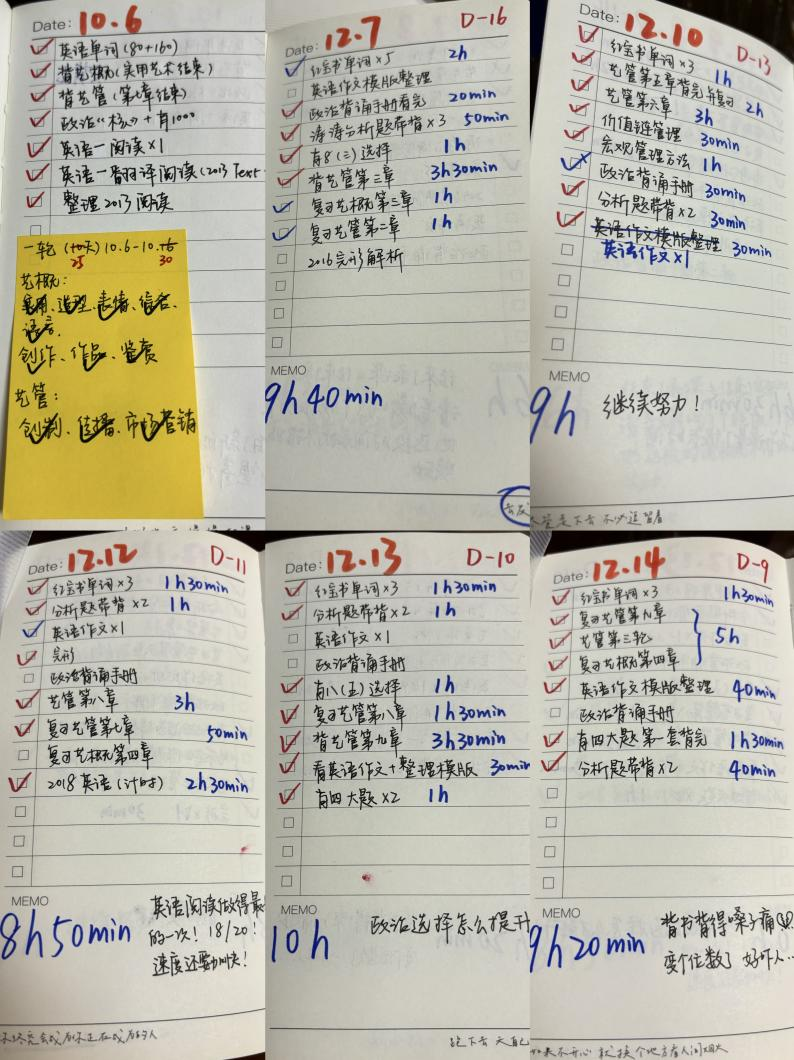 Date: 10.6
英语单词(80+160)
背艺概(实用艺术结束)
背艺管(第七章结束)
政治"核心"+肖1000
英语一阅读×1
英语一翻译阅读(2013 Text
整理2013阅读
一轮(10天)10.6-10.16
25 30
艺概:
实用、造型、表情、综合、
语言、
创作、作品、鉴赏
艺管:
创制、传播、市场营销
Date: 12.7 D-16
红宝书单词×5 2h
英语作文模版整理
政治背诵手册看完 20min
涛涛分析题带背×3 50min
肖8(三)选择 1h
背艺管第三章 3h30min
复习艺概第三章 1h
复习艺管第二章 1h
2016完形解析
MEMO
9h40min
Date: 12.10 D-13
红宝书单词×3 1h
艺管第五章背完并复习 2h
艺管第六章 3h
价值链管理 30min
宏观管理方法 1h
政治背诵手册 30min
分析题带背×2 30min
英语作文模版整理 30min
英语作文×1
MEMO
9h 继续努力!
Date: 12.12 D-11
红宝书单词×3 1h30min
分析题带背×2 1h
英语作文×1
完形
政治背诵手册
艺管第八章 3h
复习艺管第七章 50min
复习艺概第四章
2018英语(计时) 2h30min
MEMO
8h50min
英语阅读做得最
的一次!18/20!
速度还要加快!
Date: 12.13 D-10
红宝书单词×3 1h30min
分析题带背×2 1h
英语作文×1
政治背诵手册
肖八(五)选择 1h
复习艺管第八章 1h30min
背艺管第九章 3h30min
看英语作文+整理模版 30min
肖四大题×2 1h
MEMO
10h
政治选择怎么提升
Date: 12.14 D-9
红宝书单词×3 1h30min
复习艺管第九章
艺管第三轮 5h
复习艺概第四章
英语作文模版整理 40min
政治背诵手册
肖四大题第一套背完 1h30min
分析题带背×2 40min
MEMO
9h20min
背书背得嗓子痛
变个位数了 好吓人…